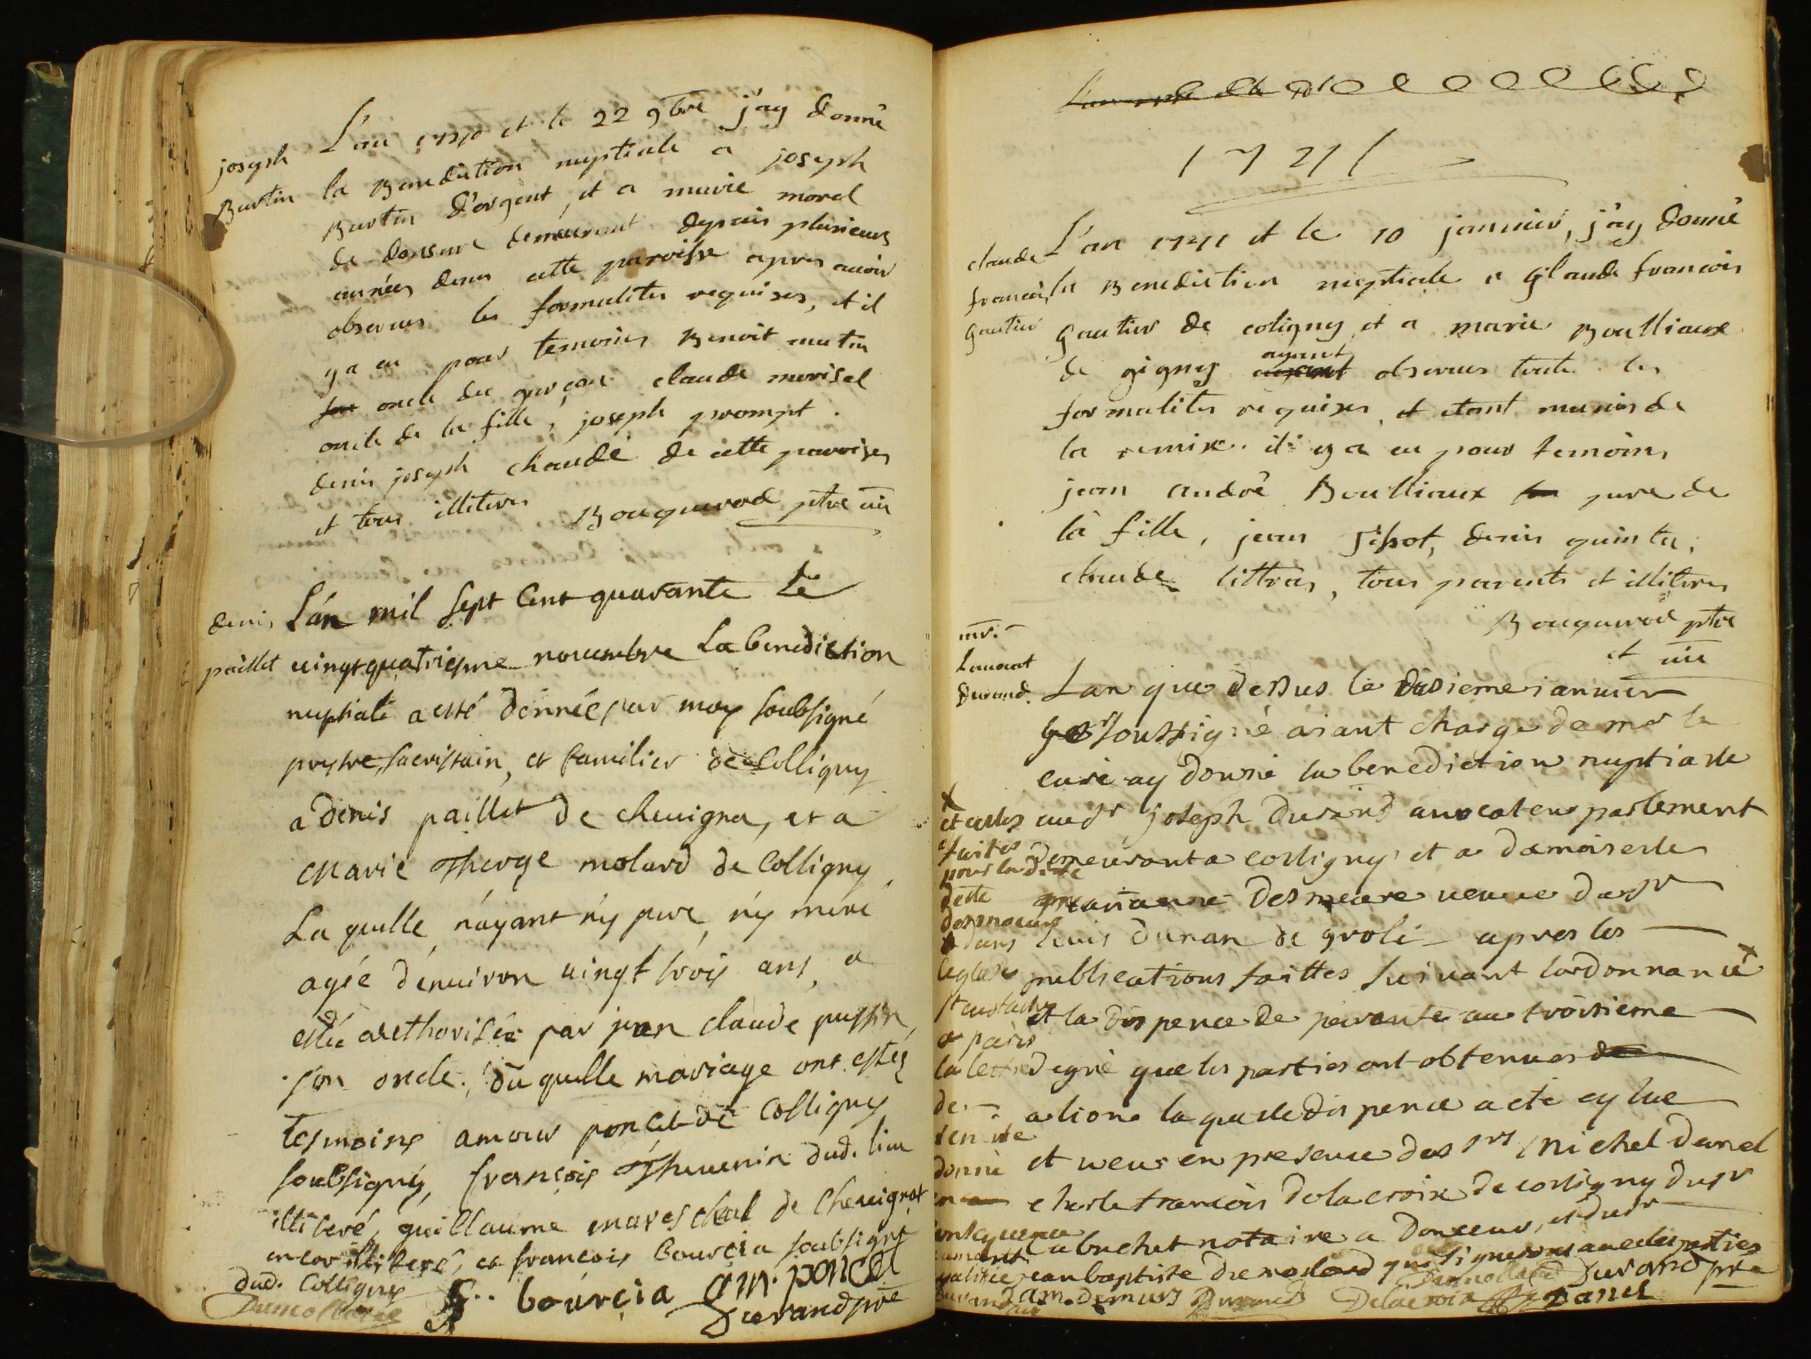 joseph
Burtin
L'an 1740 et le 22 9bre j'ay donné
la Benediction nuptiale a joseph
Burtin d'argent, et a marie morel
de donsure demeurant depuis plusieurs
années dans cette paroisse apres avoir
observer les formalites requises, et il
y a eu pour temoins Benoit
oncle du garçon claude morisel
oncle de la fille, joseph prompt
denis joseph chaudé de cette paroisse
et tous illiteres Bouquerod ptre vic
denis
paillet
L'an mil sept Cent quarante Le
vingt quatriesme novembre La benediction
nuptiale a esté donnée par moy soubsigné
prestre, sacristain, et familier de Colligny
a denis paillet de chevigna, et a
Marie Therese molard de Colligny,
La quelle n'ayant n'y pere, n'y mere
agée d'environ vingt trois ans, a
esté aucthorisée par jean claude
son oncle. du quelle mariage ont estés
tesmoins amour poncet de Colligny
soubsigné, françois Thevenin dud. lieu
illiteré, guillaume mareschal de Chevignat
encor illiteré, et francois bourcia soubsigné
dud. Colligny
f. bourcia am. poncet
Durand pre
1741
claude
francois
gautier
L'an 1741 et le 10 janvier, j'ay donné
la Benediction nuptiale a glaude francois
gautier de coligny et a marie Boulliaux
de gigny ayant observer toute les
formalites requises, et etant munis de
la remise. il y a eu pour temoins
jean andré Boulliaux pere de
la fille, jean denis
claude tous parents et illiteres
Bouquerod ptre
et vic
mr.
Lavocat
Durand.
Lan que dessus le disieme ianvier
soussigné aiant charge de mr le
curé ay donné la benediction nuptiale
au sr joseph Durand avocat en parlement
demeurant a colligny et a damoiselle
marianne Desmeure veuve du sr
louis Dunan de groli apres les
publications faittes suivant lordonnance
et la dispence de parenté au troisieme
degré que les parties ont obtenues
a lion la quelle dispence a eté cy lue
et veue en presence des srs Michel Danel
charle francois de la croix de colligny du sr
buchet notaire a donceur, et du sr
jean baptiste Dumolard qui signeront avec les parties
et celles
faites
pour la dite
dans
leglise
st eustache
a paris
la lettre
de
donné
en
consequence
am. demurs Durand Delacroix Danel
Dumollard Durand pre